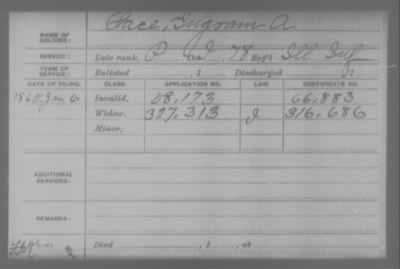 Pace, Ingram A
NAME OF SOLDIER:
SERVICE: Late rank, P Co. I, 78 Reg't Ill Inf
TERM OF SERVICE: Enlisted , 1 Discharged , 1
DATE OF FILING. CLASS. APPLICATION NO. LAW. CERTIFICATE NO.
1865 Jan 6 Invalid, 58,173 66,883
Widow, 327,313 J 316,686
Minor,
ADDITIONAL SERVICES:
REMARKS:
Died , 1 , at